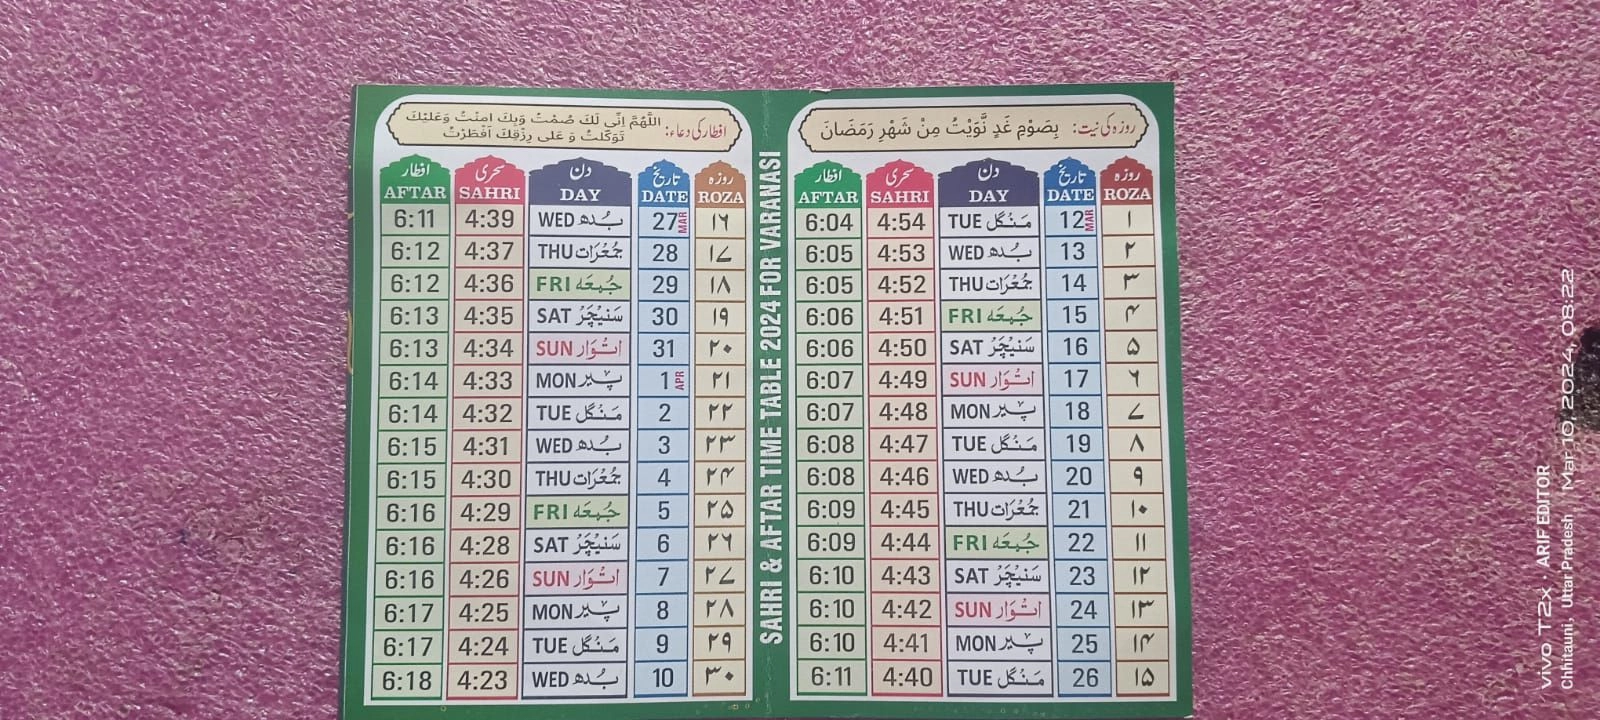 روزہ کی نیت: بِصَوْمِ غَدٍ نَّوَيْتُ مِنْ شَهْرِ رَمَضَانَ
روزہ تاریخ دن سحری افطار
ROZA DATE DAY SAHRI AFTAR
۱ 12 MAR مَنگل TUE 4:54 6:04
۲ 13 بُدھ WED 4:53 6:05
۳ 14 جُمْعَرَات THU 4:52 6:05
۴ 15 جُمِعَه FRI 4:51 6:06
۵ 16 سَنِیْچَرْ SAT 4:50 6:06
۶ 17 اتْوَار SUN 4:49 6:07
۷ 18 پیر MON 4:48 6:07
۸ 19 مَنگل TUE 4:47 6:08
۹ 20 بُدھ WED 4:46 6:08
۱۰ 21 جُمْعَرَات THU 4:45 6:09
۱۱ 22 جُمِعَه FRI 4:44 6:09
۱۲ 23 سَنِیْچَرْ SAT 4:43 6:10
۱۳ 24 اتْوَار SUN 4:42 6:10
۱۴ 25 پیر MON 4:41 6:10
۱۵ 26 مَنگل TUE 4:40 6:11
SAHRI & AFTAR TIME TABLE 2024 FOR VARANASI
افطار کی دعاء: اَللّٰهُمَّ اِنِّي لَكَ صُمْتُ وَبِكَ اٰمَنْتُ وَعَلَيْكَ
تَوَكَّلْتُ وَ عَلٰى رِزْقِكَ اَفْطَرْتُ
روزہ تاریخ دن سحری افطار
ROZA DATE DAY SAHRI AFTAR
۱۶ 27 MAR بُدھ WED 4:39 6:11
۱۷ 28 جُمْعَرَات THU 4:37 6:12
۱۸ 29 جُمِعَه FRI 4:36 6:12
۱۹ 30 سَنِیْچَرْ SAT 4:35 6:13
۲۰ 31 اتْوَار SUN 4:34 6:13
۲۱ 1 APR پیر MON 4:33 6:14
۲۲ 2 مَنگل TUE 4:32 6:14
۲۳ 3 بُدھ WED 4:31 6:15
۲۴ 4 جُمْعَرَات THU 4:30 6:15
۲۵ 5 جُمِعَه FRI 4:29 6:16
۲۶ 6 سَنِیْچَرْ SAT 4:28 6:16
۲۷ 7 اتْوَار SUN 4:26 6:16
۲۸ 8 پیر MON 4:25 6:17
۲۹ 9 مَنگل TUE 4:24 6:17
۳۰ 10 بُدھ WED 4:23 6:18
vivo T2x · ARIF EDITOR
Chhitauni, Uttar Pradesh Mar 10, 2024, 08:22